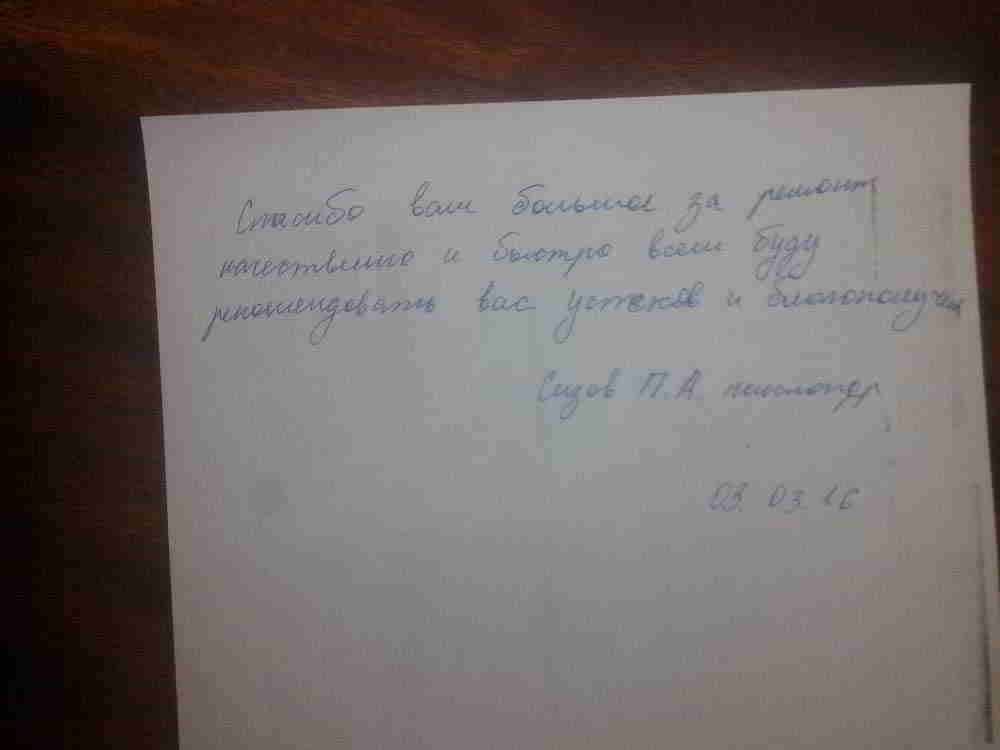 Спасибо вам большое за ремонт
качественно и быстро всем буду
рекомендовать вас успехов и благополучия
Сизов П.А.
03.03.16